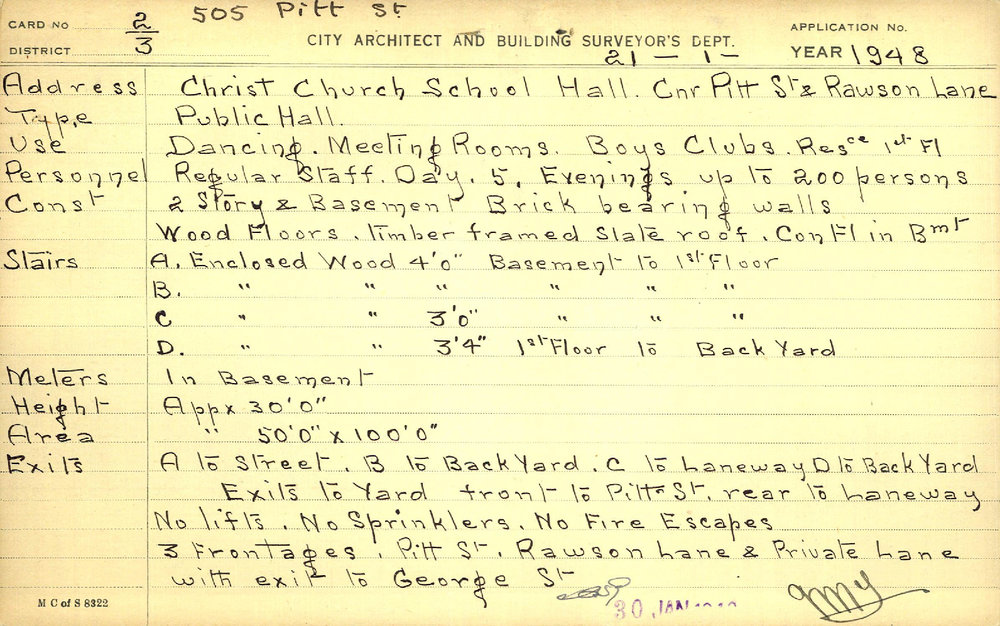 CARD NO 2/3 505 Pitt St
DISTRICT
CITY ARCHITECT AND BUILDING SURVEYOR'S DEPT.
APPLICATION No.
21 - 1 - YEAR 1948
Address Christ Church School Hall. Cnr Pitt St & Rawson Lane
Type Public Hall.
Use Dancing. Meeting Rooms. Boys Clubs. Resce 1st Fl
Personnel Regular Staff. Day. 5. Evenings up to 200 persons
Const 2 Story & Basement Brick bearing walls
Wood Floors. timber framed Slate roof. Con Fl in Bmt
Stairs A. Enclosed Wood 4'0" Basement to 1st Floor
B. " " " " " "
C " " 3'0" " " "
D. " " 3'4" 1st Floor to Back Yard
Meters In Basement
Height Appx 30'0"
Area " 50'0" x 100'0"
Exits A to Street. B to Back Yard. C to Laneway D to Back Yard
Exits to Yard front to Pitt St. rear to Laneway
No lifts. No Sprinklers. No Fire Escapes
3 Frontages. Pitt St. Rawson Lane & Private Lane
with exit to George St
M C of S 8322
30 JAN